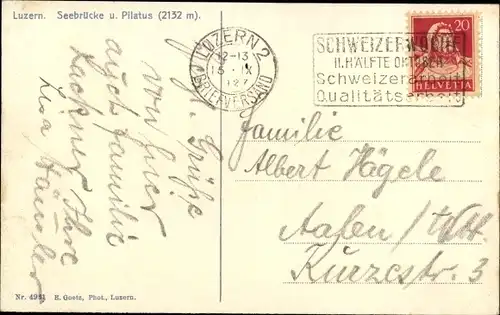 Luzern. Seebrücke u. Pilatus (2132 m).
LUZERN 2
12-13
13. IX
1927
BRIEFVERSAND
SCHWEIZERWOCHE
II. HÄLFTE OKTOBER
Schweizerarbeit
Qualitätsarbeit
20
HELVETIA
Grüße
von Ihrer
auch Familie
Lachner Ihre
Lisa
Familie
Albert Hägele
Aalen / Wttb.
Kurzestr. 3
Nr. 4951 E. Goetz, Phot., Luzern.